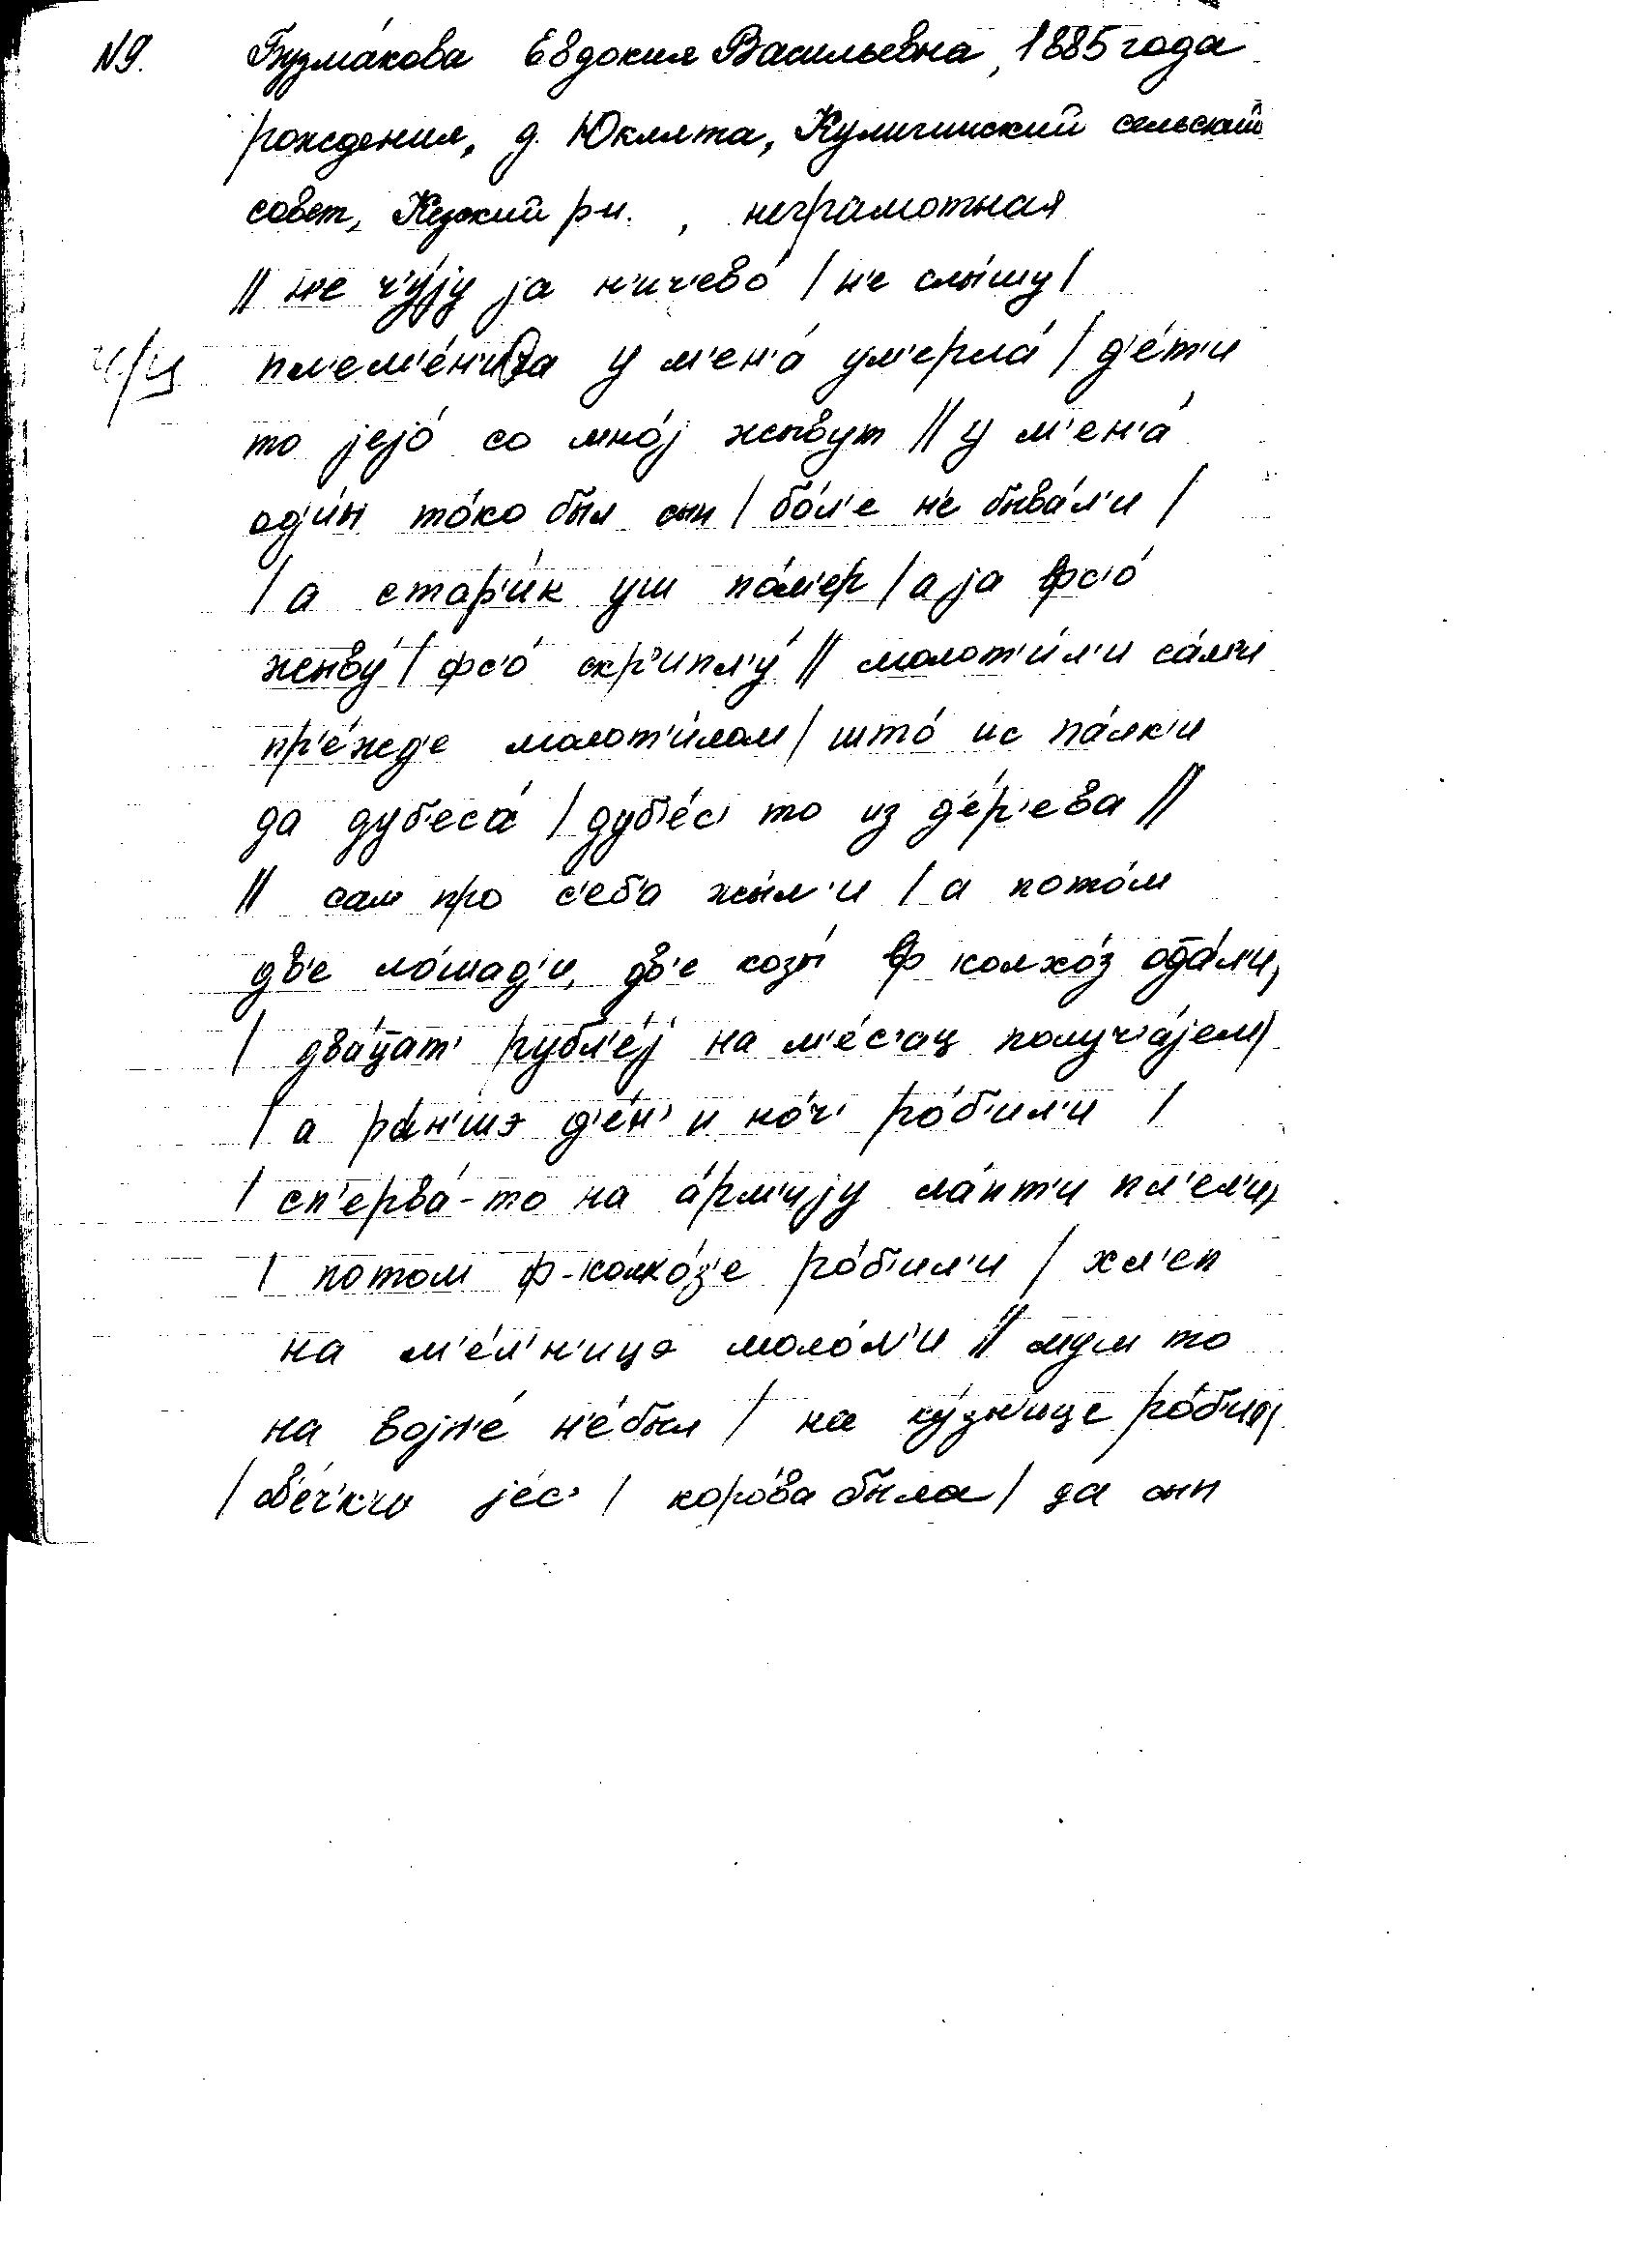 N9. Бузма́кова Евдокия Васильевна, 1885 года
рождения, д. Юклята, Кулигинский сельский
совет, Кезский р-н., неграмотная
|| н'е ч'у́jу jа н'ич'ево́ / н'е слы́шу /
ч/ц пл'ем'е́н'и а у м'ен'а́ ум'ерла́ / д'е́т'и
то jеjо́ со мно́j жывут || у м'ен'а́
од'и́н то́ко был сын / бо́л'е н'е быва́л'и /
/ а стар'и́к уш по́м'ер / а jа фс'о́
жыву́ / фс'о́ скр'ипл'у́ || молот'и́л'и са́м'и
пр'е́жд'е молот'и́лом / што́ ис па́лк'и
да дуб'еса́ / дуб'е́с' то из д'е́р'ева ||
|| сам про с'еб'а жы́л'и / а пото́м
дв'е ло́шад'и, дв'е козы́ ф колхо́з од̅а́л'и,
/ два́ц̅ат' рубл'е́j на м'е́с'ац получ'а́jем /
/ а ра́н'шэ д'е́н' и но́ч' ро́б'ил'и /
/ сп'ерва́-то на а́рм'иjу ла́пт'и пл'ел'и,
/ потом ф-колхо́з'е ро́б'ил'и / хл'еп
на м'е́л'н'ицэ моло́л'и || муш то
на воjн'е́ н'е́был / на ку́зн'ице ро́б'ил /
/ ов'е́ч'к'и jе́с' / коро́ва была / да сын